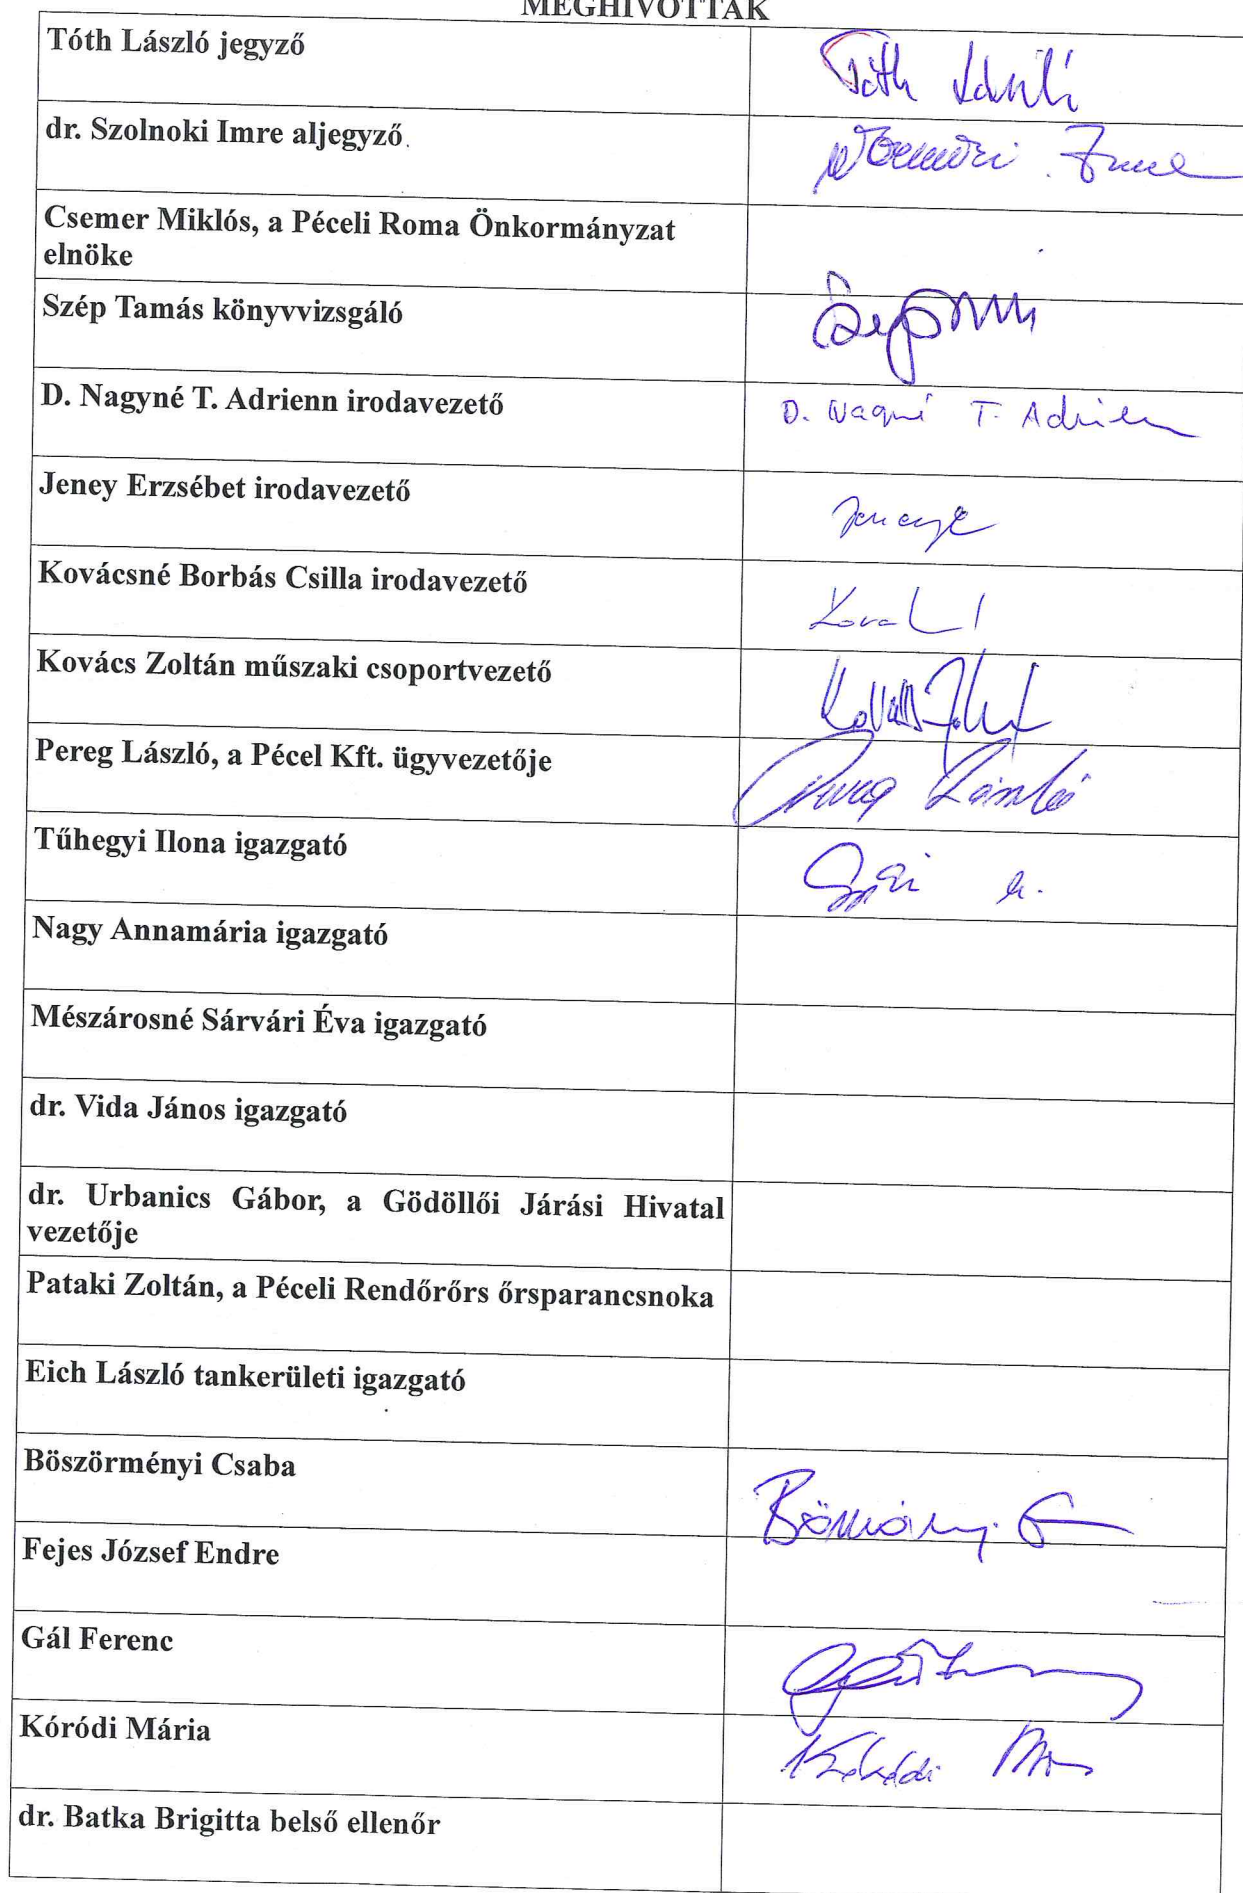 MEGHÍVOTTAK
Tóth László jegyző
Tóth László
dr. Szolnoki Imre aljegyző
Imre
Csemer Miklós, a Péceli Roma Önkormányzat
elnöke
Szép Tamás könyvvizsgáló
D. Nagyné T. Adrienn irodavezető
D. Nagyné T. Adrienn
Jeney Erzsébet irodavezető
Jeney E
Kovácsné Borbás Csilla irodavezető
Kovács Zoltán műszaki csoportvezető
Kovács Zoltán
Pereg László, a Pécel Kft. ügyvezetője
Pereg László
Tűhegyi Ilona igazgató
Nagy Annamária igazgató
Mészárosné Sárvári Éva igazgató
dr. Vida János igazgató
dr. Urbanics Gábor, a Gödöllői Járási Hivatal
vezetője
Pataki Zoltán, a Péceli Rendőrőrs őrsparancsnoka
Eich László tankerületi igazgató
Böszörményi Csaba
Böszörményi Cs
Fejes József Endre
Gál Ferenc
Kóródi Mária
Kóródi
dr. Batka Brigitta belső ellenőr